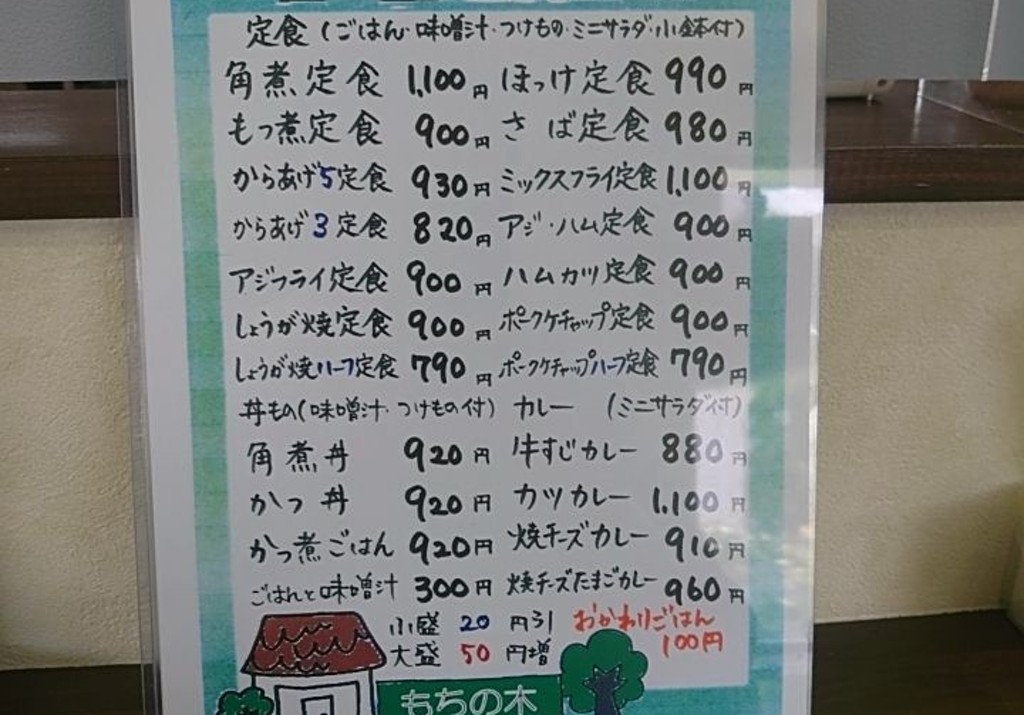 定食(ごはん・味噌汁・つけもの・ミニサラダ・小鉢付)
角煮定食 1,100円 ほっけ定食 990円
もつ煮定食 900円 さば定食 980円
からあげ5定食 930円 ミックスフライ定食 1,100円
からあげ3定食 820円 アジ・ハム定食 900円
アジフライ定食 900円 ハムカツ定食 900円
しょうが焼定食 900円 ポークケチャップ定食 900円
しょうが焼ハーフ定食 790円 ポークケチャップハーフ定食 790円
丼もの(味噌汁・つけもの付) カレー (ミニサラダ付)
角煮丼 920円 牛すじカレー 880円
かつ丼 920円 カツカレー 1,100円
かつ煮ごはん 920円 焼チーズカレー 910円
ごはんと味噌汁 300円 焼チーズたまごカレー 960円
小盛 20円引 おかわりごはん
大盛 50円増 100円
もちの木